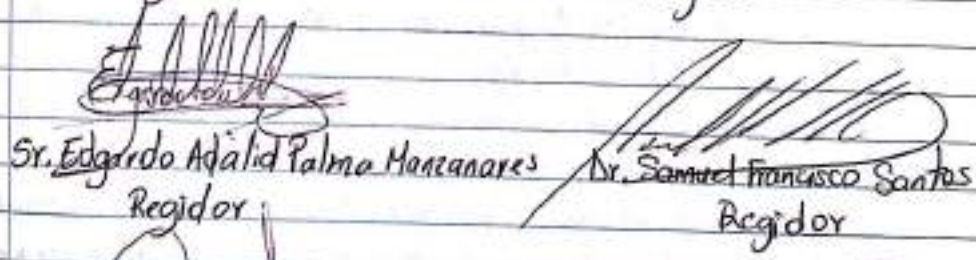 Sr. Edgardo Adalid Palma Manzanares
Regidor
Dr. Samuel Francisco Santos
Regidor